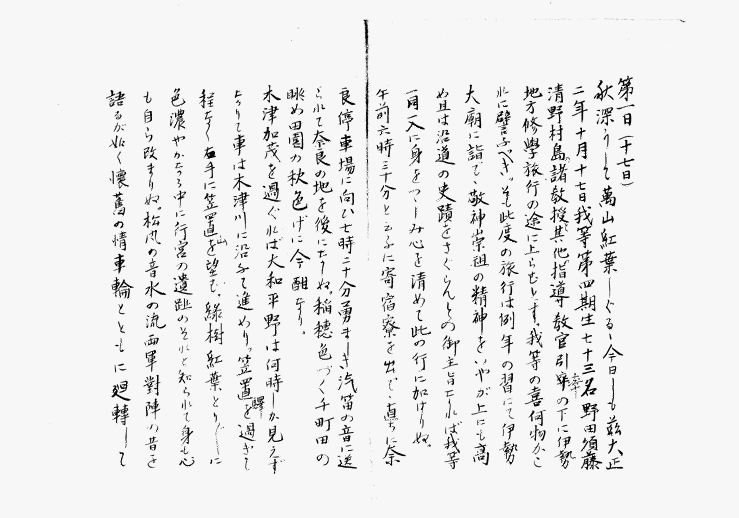 第一日（十七日）
秋深うして萬山紅葉しぐるゝ今日しも茲大正
二年十月十七日我等第四期生七十三名野田須藤
清野村島の諸教授其他指導教官引率の下に伊勢
地方修學旅行の途に上らむとす。我等の喜何物かこ
れに譬ふべき。そも此度の旅行は例年の習にて伊勢
大廟に詣で敬神崇祖の精神をいやが上にも高
め且は沿道の史蹟をさぐらんとの御主旨なれば我等
一同一人に身をつゝしみ心を清めて此の行に加はりぬ。
午前六時三十分と云ふに寄宿寮を出で直ちに奈
良停車場に向ひ七時二十分勇ましき汽笛の音に送
られて奈良の地を後にしぬ。稲穂色づく千町田の
眺め田園の秋色げに今酣なり。
木津加茂を過ぐれば大和平野は何時しか見えず
なりて車は木津川に沿うて進めり。笠置驛を過ぎて
程なく右手に笠置山を望む。緑樹紅葉とりどりに
色濃やかなる中に行宮の遺趾のそれと知られて身も心
も自ら改まりぬ。松風の音水の流両軍對陣の昔を
語るが如く懐舊の情車輪とともに廻轉して